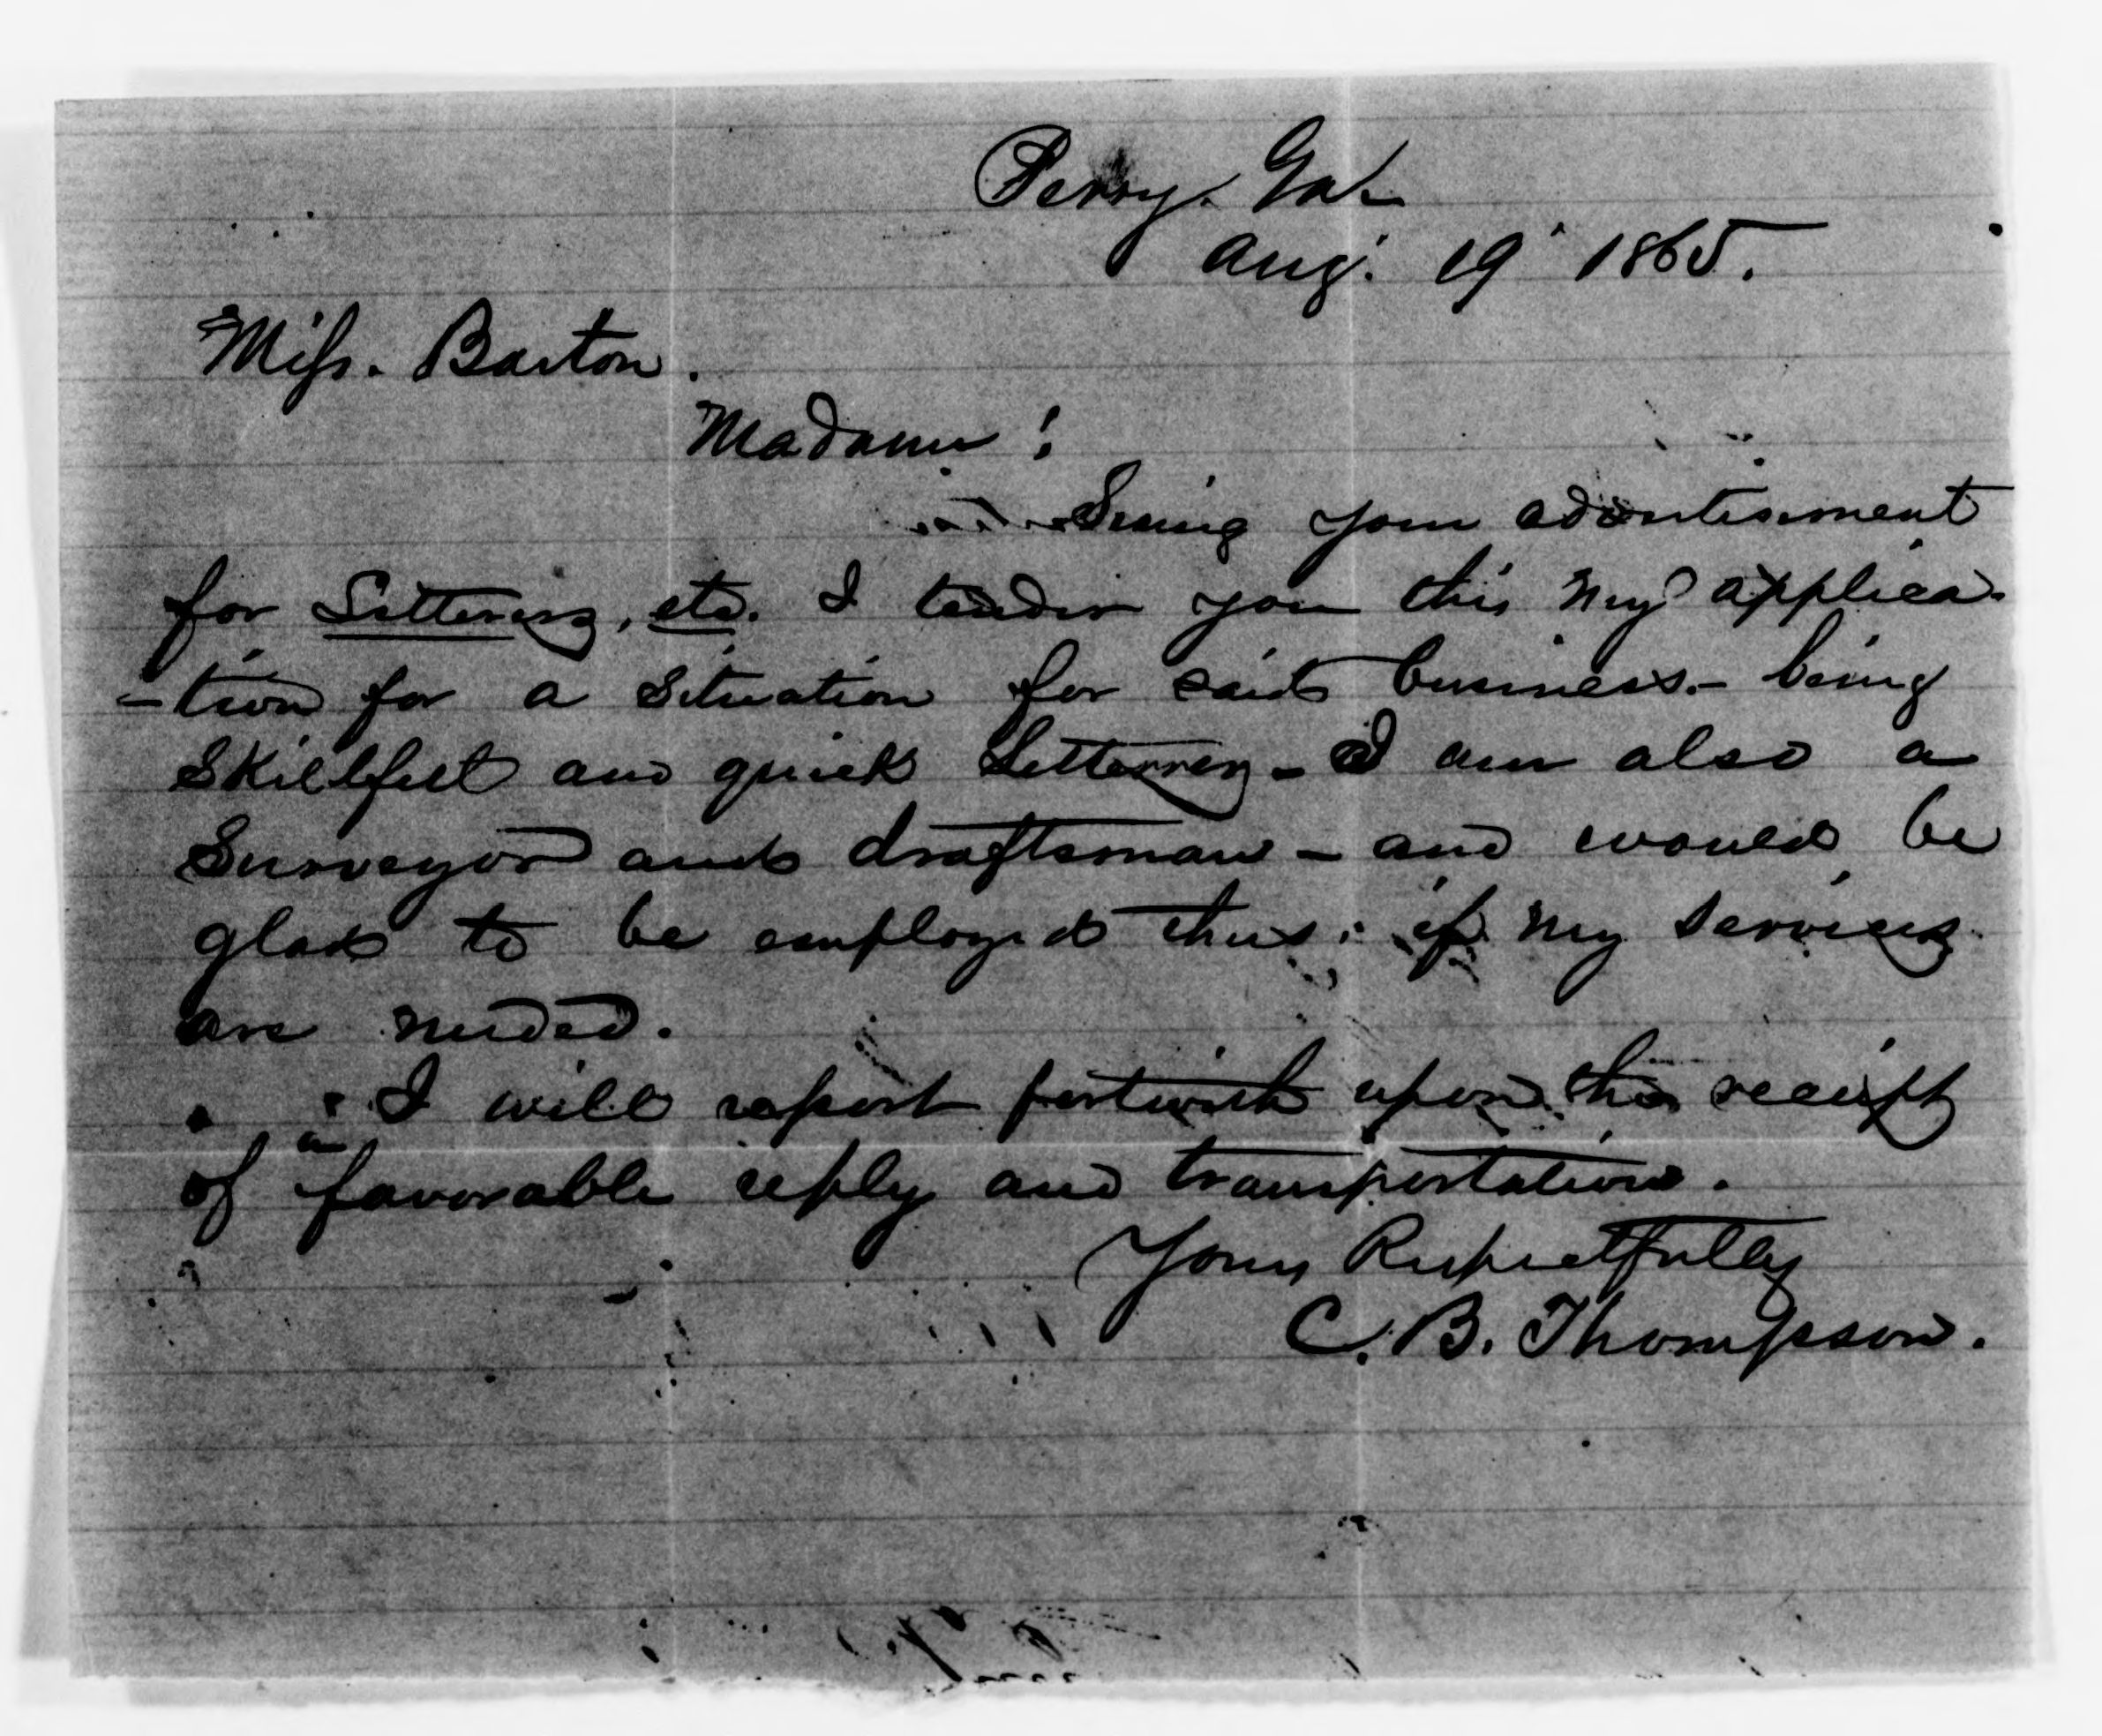 Perry. Ga.
Aug. 19 1865.
Miss. Barton.
Madam!
Seeing your advertisement
for Lettering, etc. I tender you this my applica-
-tion for a situation for said business.- being
skillful and quick Letterer - I am also a
Surveyor and draftsman - and would be
glad to be employed thus: if my services
are needed.
I will report fortwith upon the receipt
of a favorable reply and transportation.
Yours Respectfully
C. B. Thompson.